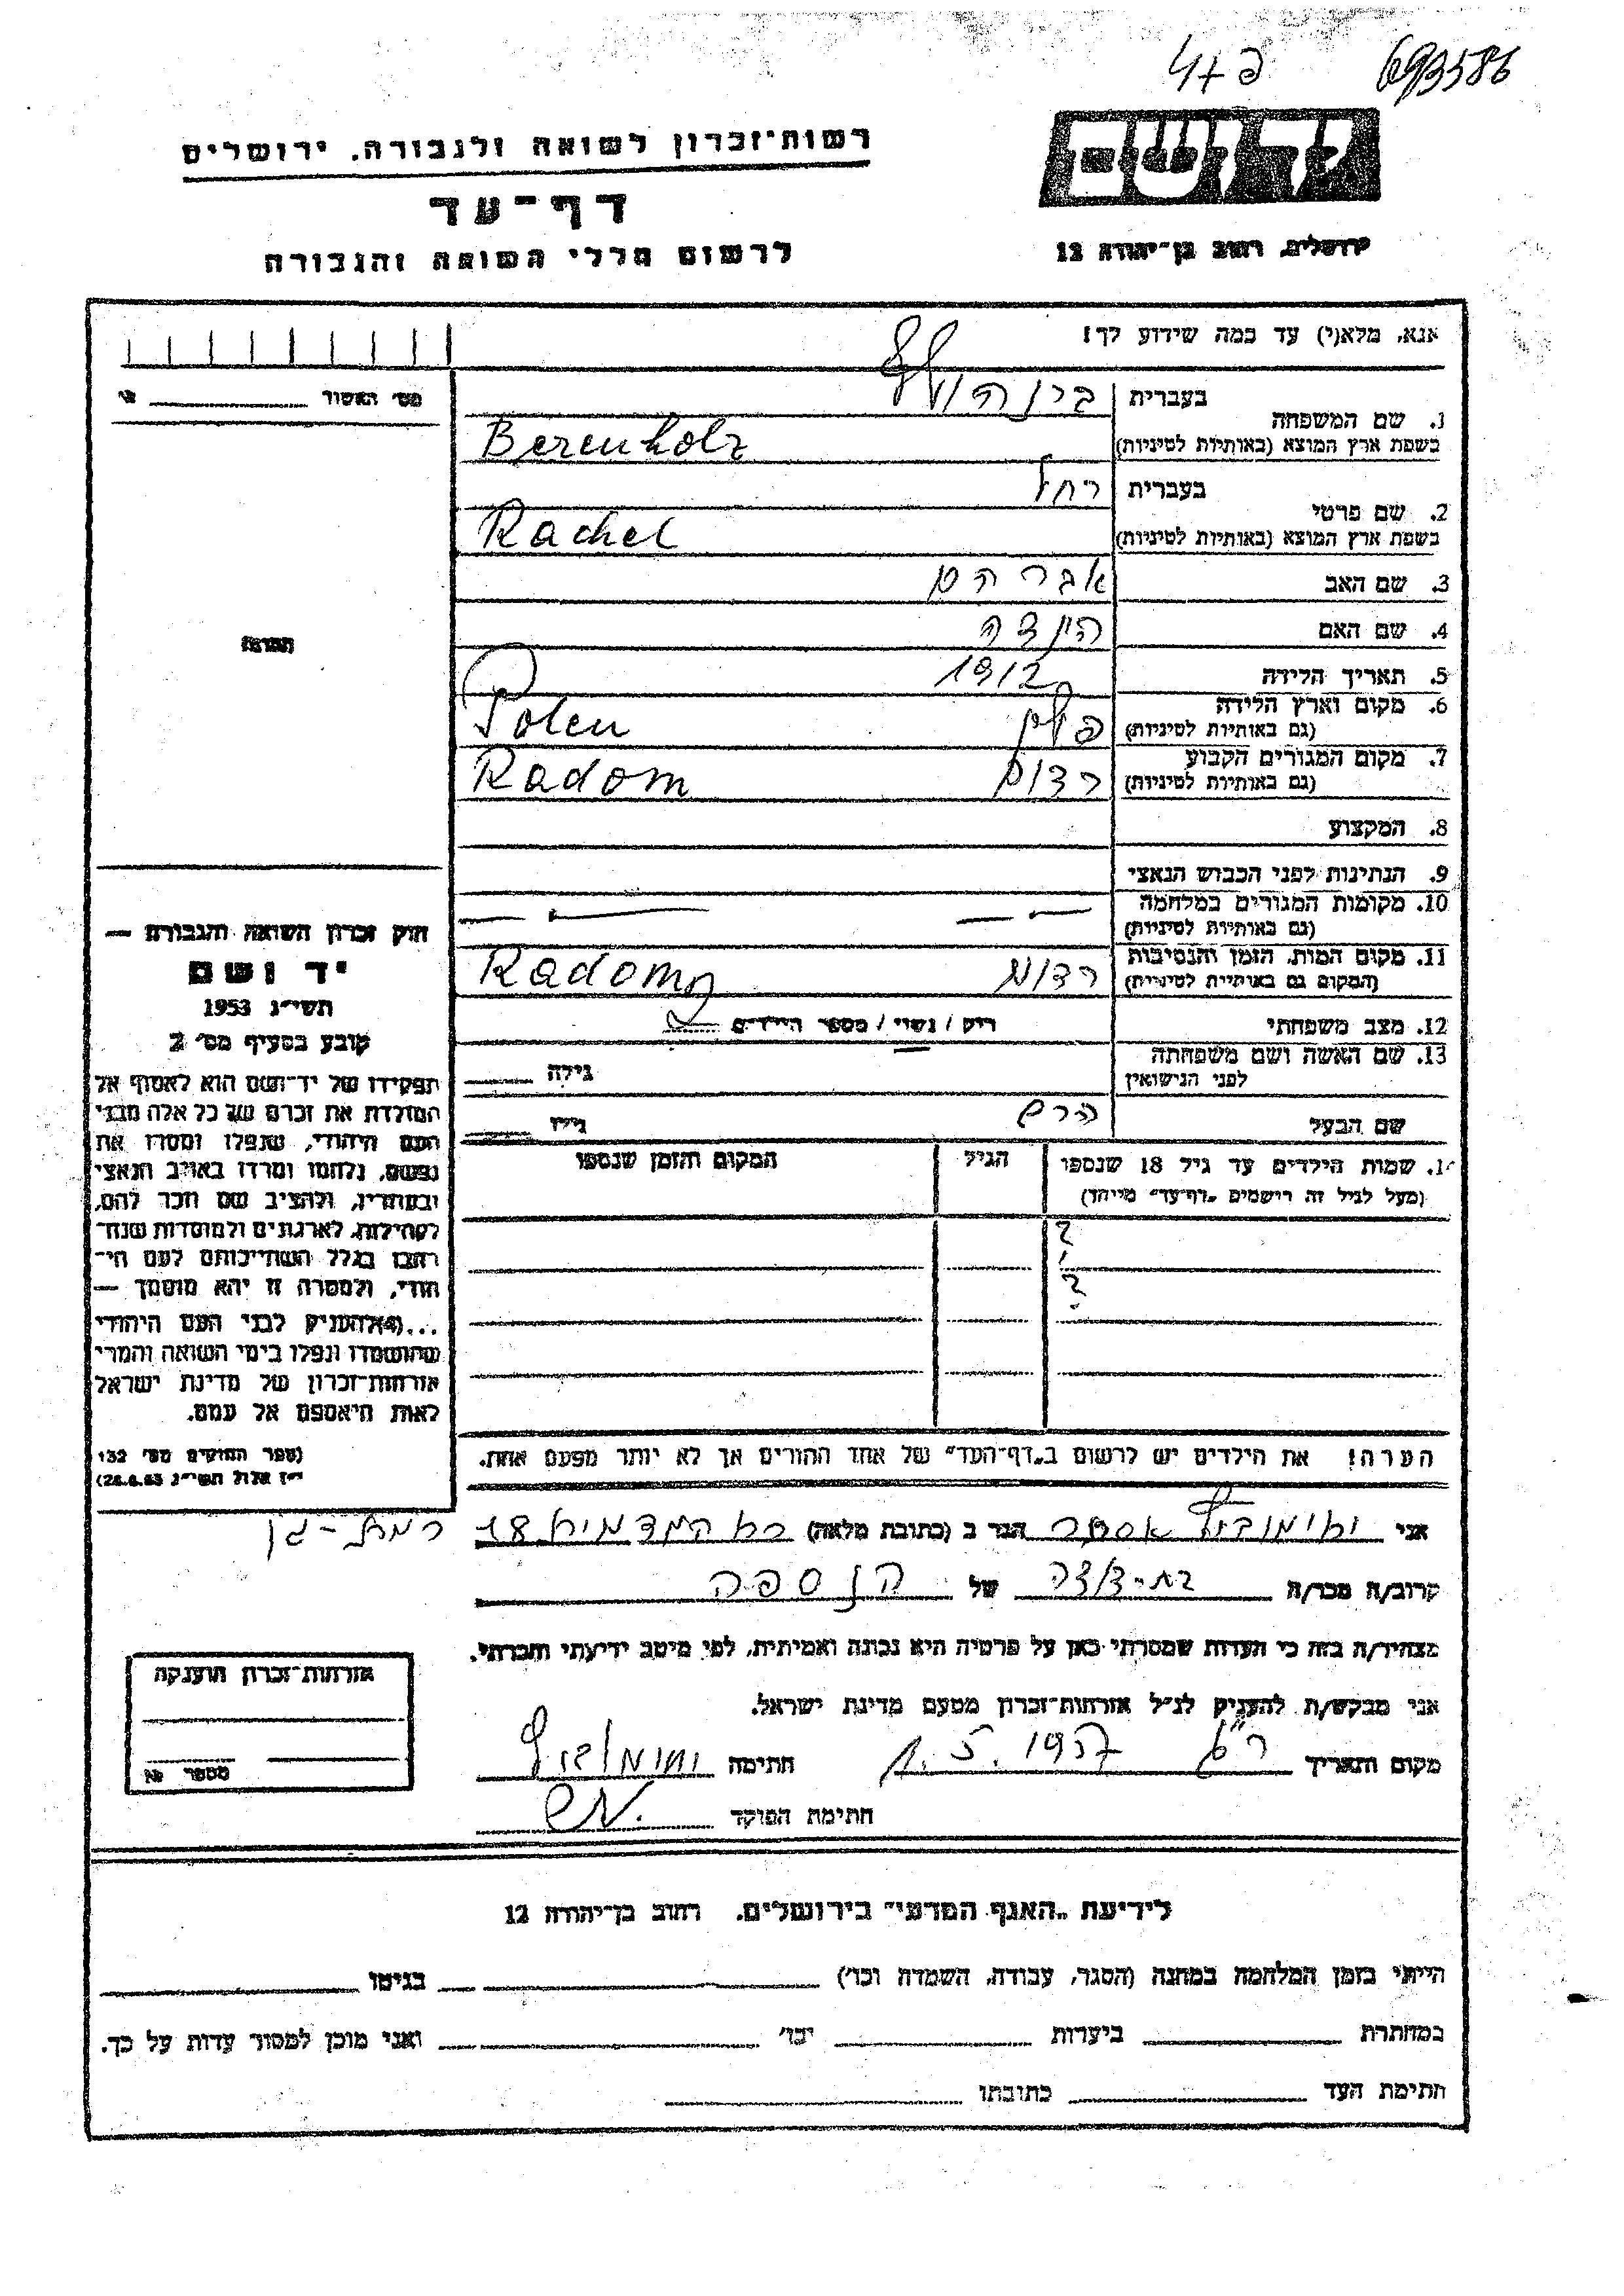 693586
יד ושם
רשות־זכרון לשואה ולגבורה. ירושלים
דף־עד
ירושלים, רחוב בן־יהודה 12
לרשום חללי השואה והגבורה
אנא, מלא(י) עד כמה שידוע לך!
מס' האשור
1. שם המשפחה
בעברית ברנהולץ
בשפת ארץ המוצא (באותיות לטיניות) Berenholz
2. שם פרטי
בעברית רחל
בשפת ארץ המוצא (באותיות לטיניות) Rachel
3. שם האב אברהם
4. שם האם הינדה
5. תאריך הלידה 1912
6. מקום וארץ הלידה (גם באותיות לטיניות) פולין Polen
7. מקום המגורים הקבוע (גם באותיות לטיניות) רדום Radom
8. המקצוע
9. הנתינות לפני הכבוש הנאצי
10. מקומות המגורים במלחמה (גם באותיות לטיניות) — —
11. מקום המות, הזמן והנסיבות (המקום גם באותיות לטיניות) רדום Radom
12. מצב משפחתי רוק / נשוי / מספר הילדים 2
13. שם האשה ושם משפחתה לפני הנישואין גילה
שם הבעל הרש גילו
14. שמות הילדים עד גיל 18 שנספו
(מעל לגיל זה רושמים „דף־עד" מיוחד)
הגיל
המקום והזמן שנספו
?
?
הערה! את הילדים יש לרשום ב„דף־העד" של אחד ההורים אך לא יותר מפעם אחת.
התמונה
חוק זכרון השואה והגבורה —
יד ושם
תשי״ג 1953
קובע בסעיף מס' 2
תפקידו של יד־ושם הוא לאסוף אל
המולדת את זכרם של כל אלה מבני
העם היהודי, שנפלו ומסרו את
נפשם, נלחמו ומרדו באויב הנאצי
ובעוזריו, ולהציב שם וזכר להם,
לקהילות, לארגונים ולמוסדות שנח־
רבו בגלל השתייכותם לעם הי־
הודי, ולמטרה זו יהא מוסמך —
...(4) להעניק לבני העם היהודי
שהושמדו ונפלו בימי השואה והמרי
אזרחות־זכרון של מדינת ישראל
לאות היאספם אל עמם.
(ספר החוקים מס' 132
י״ז אלול תשי״ג 28.8.53)
אני אסתר הגר ב (כתובת מלאה) 18 רמת-גן
קרוב/ה מכר/ה בת-דודה של הנספה
מצהיר/ה בזה כי העדות שמסרתי כאן על פרטיה היא נכונה ואמיתית, לפי מיטב ידיעתי והכרתי.
אני מבקש/ת להעניק לנ״ל אזרחות־זכרון מטעם מדינת ישראל.
מקום ותאריך ר״ג 1.5.1957 חתימה
חתימת הפוקד
אזרחות־זכרון הוענקה
מספר
לידיעת „האגף המדעי" בירושלים. רחוב בן־יהודה 12
הייתי בזמן המלחמה במחנה (הסגר, עבודה, השמדה וכו') בגיטו
במחתרת ביערות וכו' ואני מוכן למסור עדות על כך.
חתימת העד כתובתו